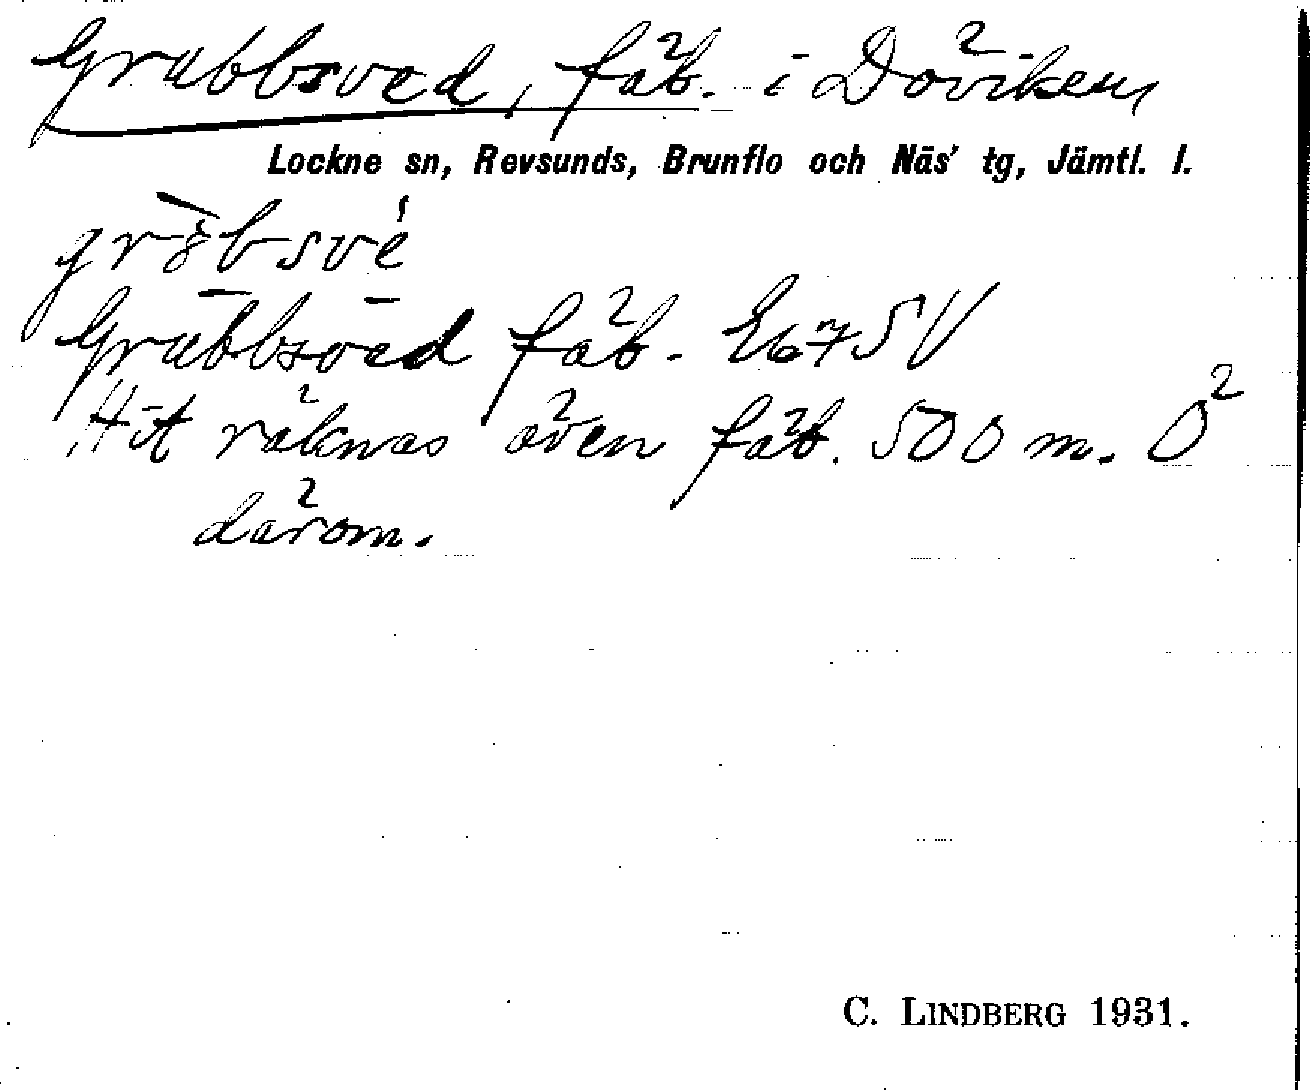 Grubbsved, fäb. i Döviken,
Lockne sn, Revsunds, Brunflo och Näs' tg, Jämtl. l.
Grubbsved fäb. E675V
Hit räknas även fäb. 500 m. Ö
därom.
C. LINDBERG 1931.